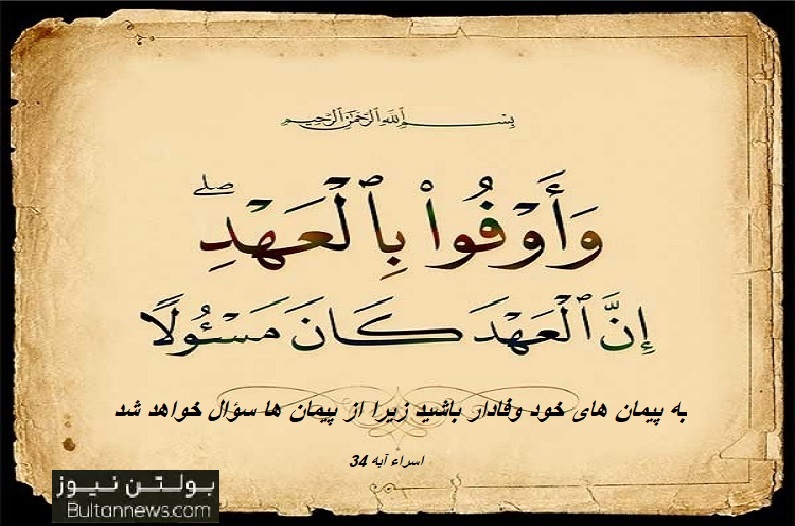 بِسْمِ اللَّهِ الرَّحْمَٰنِ الرَّحِيمِ
وَأَوْفُوا۟ بِٱلْعَهْدِ ۖ
إِنَّ ٱلْعَهْدَ كَانَ مَسْـُٔولًا
به پیمان های خود وفادار باشید زیرا از پیمان ها سؤال خواهد شد
اسراء آیه 34
بولتن نیوز
Bultannews.com